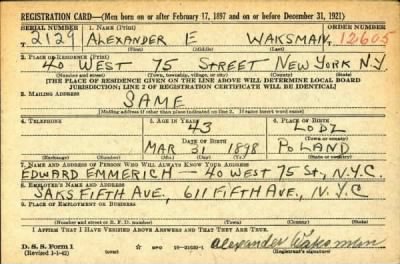 REGISTRATION CARD—(Men born on or after February 17, 1897 and on or before December 31, 1921)
SERIAL NUMBER 1. NAME (Print) ORDER NUMBER
T 2129 ALEXANDER E WAKSMAN 12605
(First) (Middle) (Last)
2. PLACE OF RESIDENCE (Print)
40 WEST 75 STREET NEW YORK N.Y.
(Number and street) (Town, township, village, or city) (County) (State)
[THE PLACE OF RESIDENCE GIVEN ON THE LINE ABOVE WILL DETERMINE LOCAL BOARD
JURISDICTION; LINE 2 OF REGISTRATION CERTIFICATE WILL BE IDENTICAL]
3. MAILING ADDRESS
SAME
[Mailing address if other than place indicated on line 2. If same insert word same]
4. TELEPHONE 5. AGE IN YEARS 6. PLACE OF BIRTH
43 LODZ
DATE OF BIRTH (Town or county)
MAR 31 1898 POLAND
(Exchange) (Number) (Mo.) (Day) (Yr.) (State or country)
7. NAME AND ADDRESS OF PERSON WHO WILL ALWAYS KNOW YOUR ADDRESS
EDWARD EMMERICH — 40 WEST 75 ST., N.Y.C.
8. EMPLOYER'S NAME AND ADDRESS
SAKS FIFTH AVE., 611 FIFTH AVE., N.Y.C
9. PLACE OF EMPLOYMENT OR BUSINESS
(Number and street or R. F. D. number) (Town) (County) (State)
I AFFIRM THAT I HAVE VERIFIED ABOVE ANSWERS AND THAT THEY ARE TRUE.
D. S. S. Form 1
(Revised 1-1-42) GPO 16—21630-1 Alexander Waksman
(Registrant's signature)